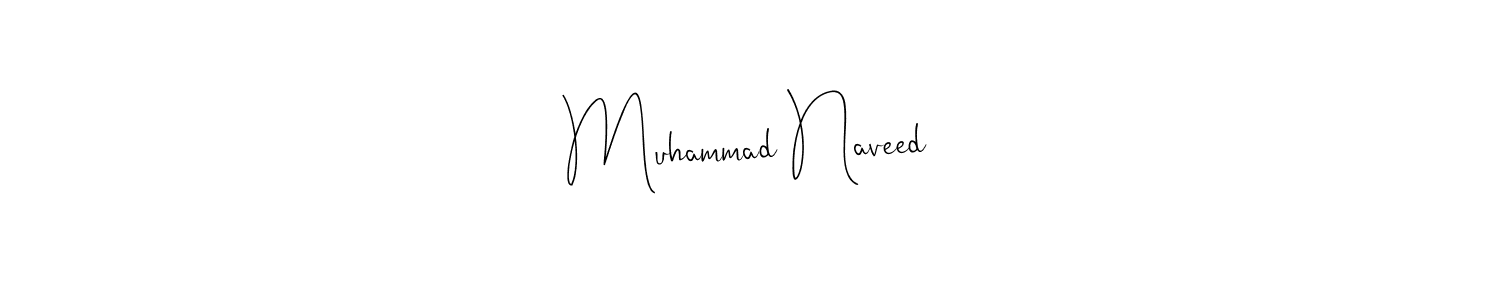 Muhammad Naveed